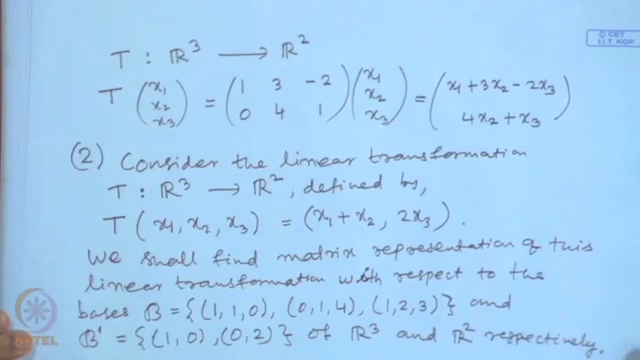 © CET
I.I.T. KGP
T : ℝ³ ⟶ ℝ²
T (x₁ x₂ x₃) = (1 3 -2 0 4 1) (x₁ x₂ x₃) = (x₁+3x₂-2x₃ 4x₂+x₃)
(2) Consider the linear transformation
T : ℝ³ ⟶ ℝ², defined by,
T (x₁, x₂, x₃) = (x₁+x₂, 2x₃).
We shall find matrix representation of this
linear transformation with respect to the
bases B = {(1,1,0), (0,1,4), (1,2,3)} and
B' = {(1,0), (0,2)} of ℝ³ and ℝ² respectively.
NPTEL